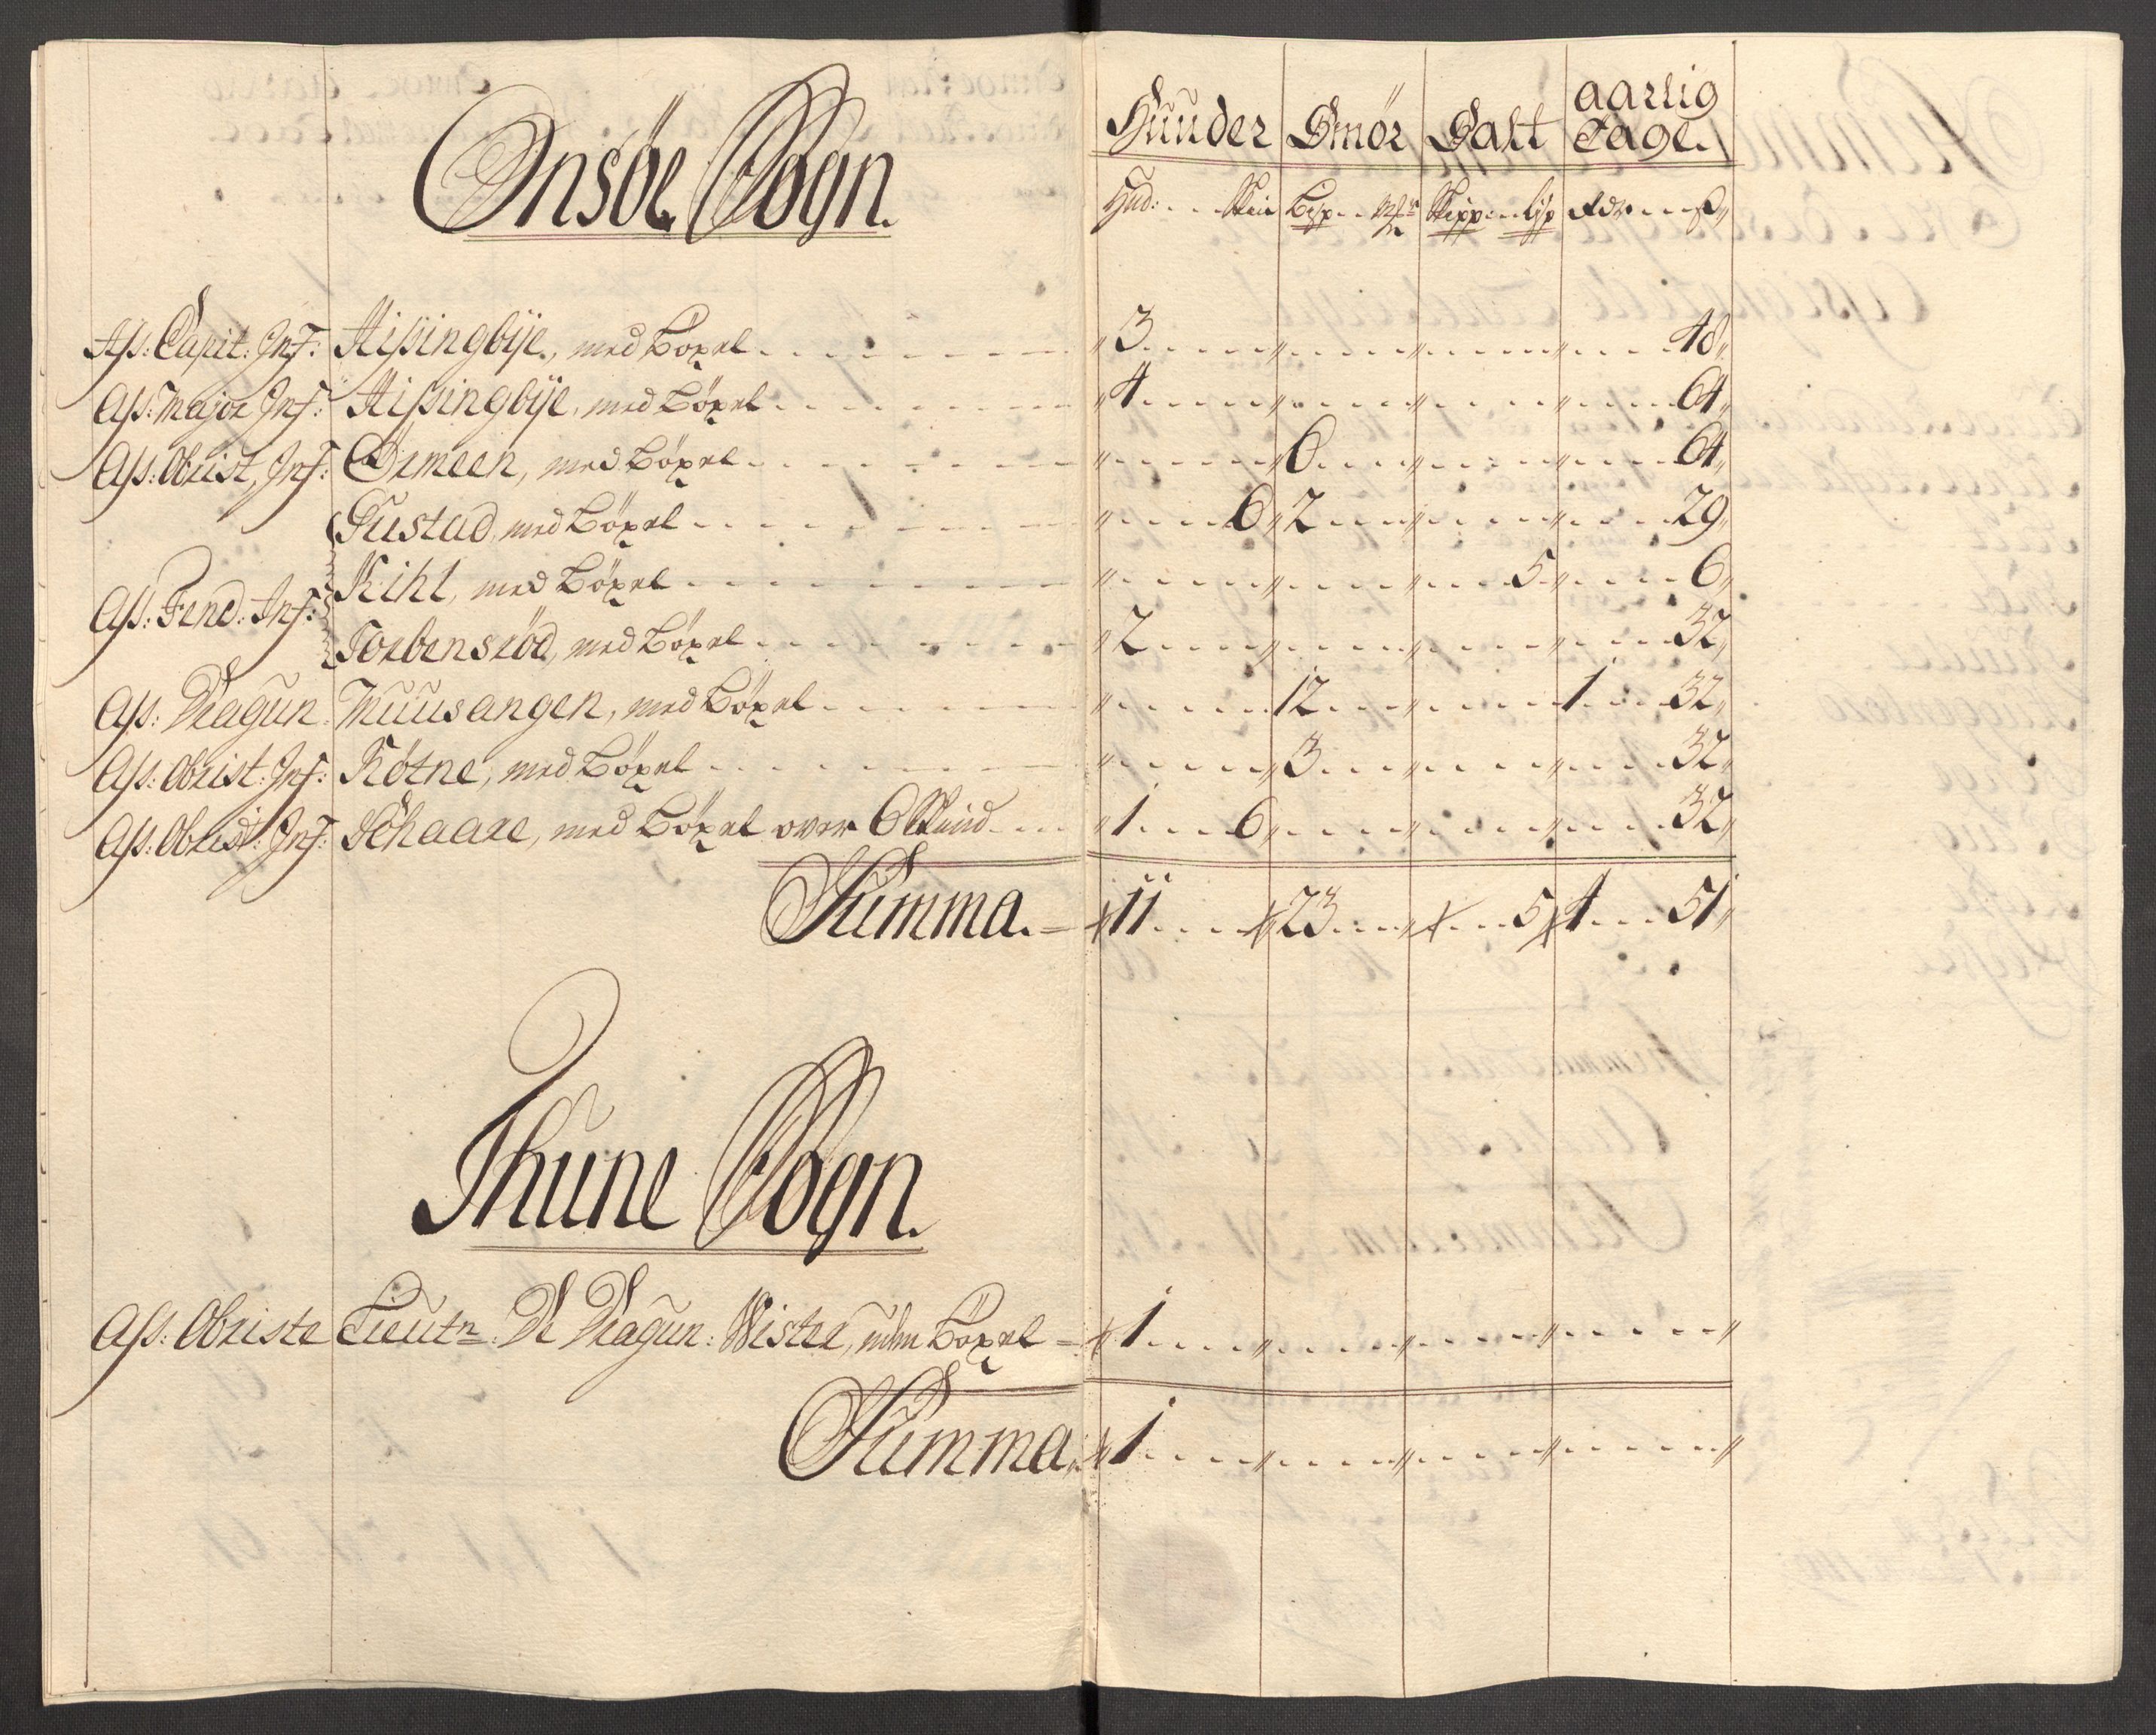 Onsöe Sogn.
Huuder Smör Salt aarlig Tage.
Hud: Skin Bispp Mrk Skipp Lisp Rdr ß
Ass: Capit: Inf: Kissingbÿe, med Böxel 3 48
Ass: Major Inf: Kissingbÿe, med Böxel 4 64
Ass: Obrist, Inf: Ormeen, med Böxel 6 64
Gustad, med Böxel 6 2 29
Ass: Fend: Inf: Kihl, med Böxel 5 6
Torbensröd, med Böxel 2 32
Ass: Dragun Muusangen, med Böxel 12 1 32
Ass: Obrist: Inf: Rötne, med Böxel 3 32
Ass: Obrist: Inf: Schaare, med Böxel over 6 Skind 1 6 32
Summa. 11 23 5 4 51
Thune Sogn.
Ass: Obriste Lieutn: De Dragun: Wister, uden Böxel 1
Summa 1